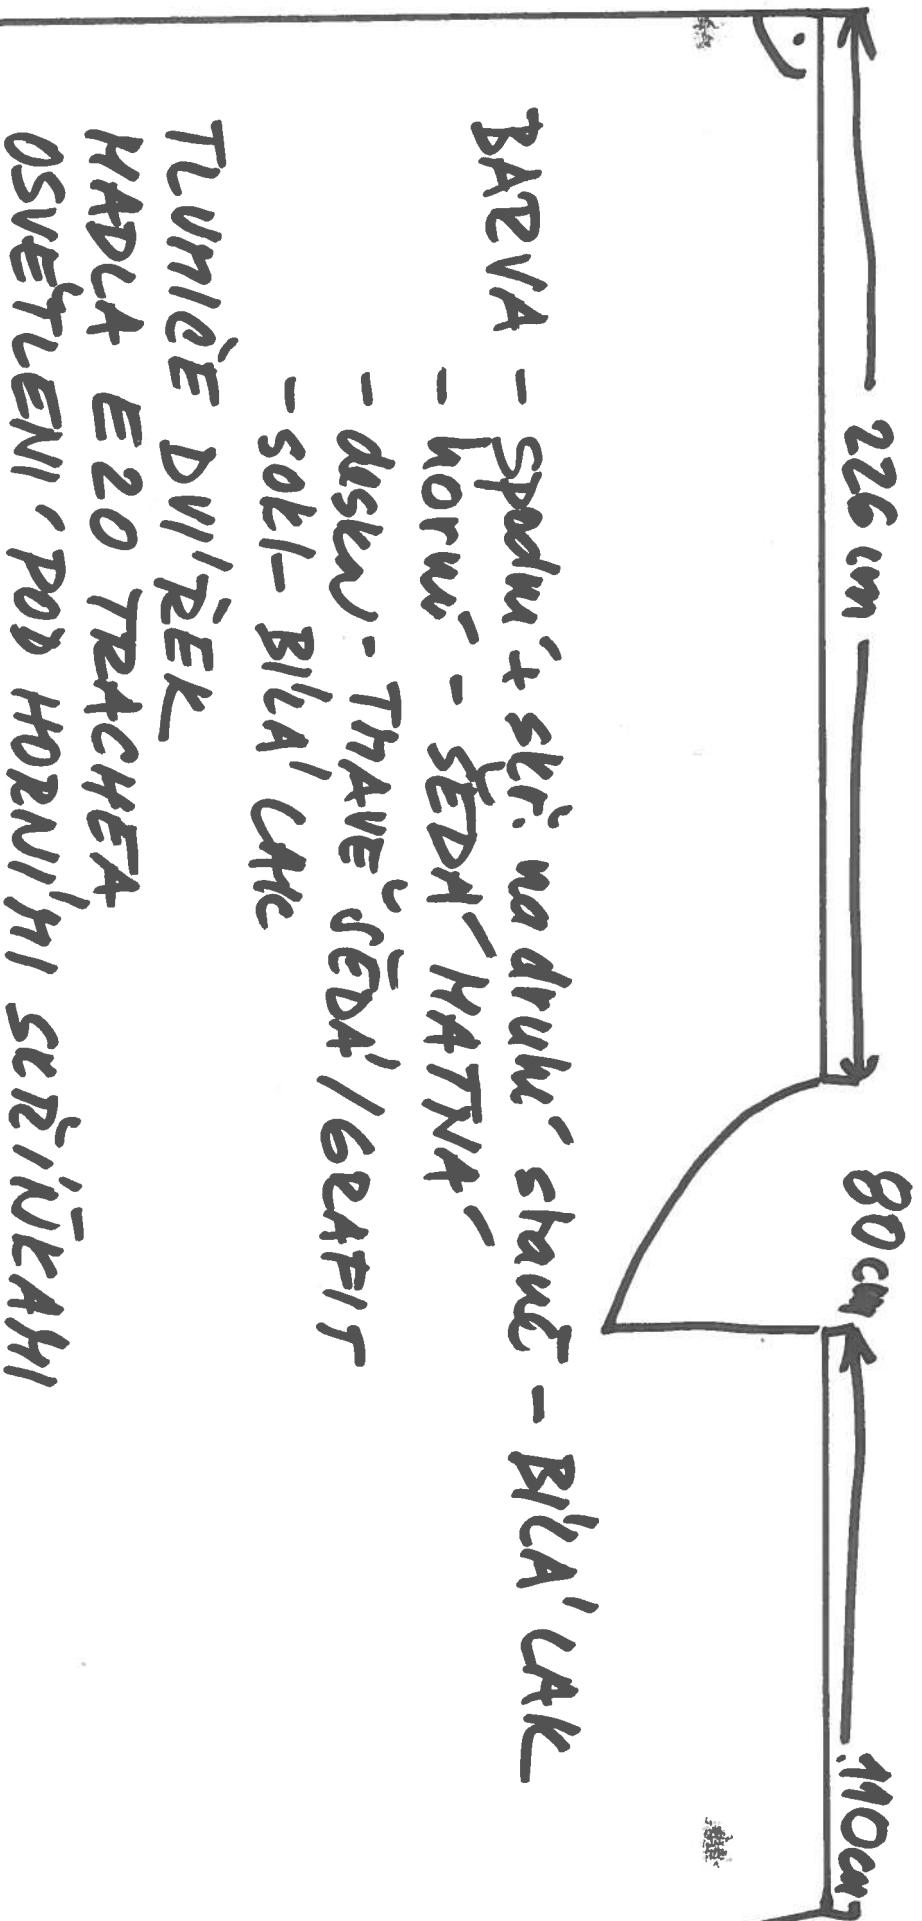 226 cm
80 cm
110 cm
BARVA - spodní + skř. na druhé straně - BÍLÁ LAK
- horní - ŠEDÁ MATNÁ
- deska - TMAVĚ ŠEDÁ / GRAFIT
- sokl - BÍLÁ LAK
TLUMIČE DVÍŘEK
MADLA E20 TRACHEA
OSVĚTLENÍ POD HORNÍMI SKŘÍŇKAMI